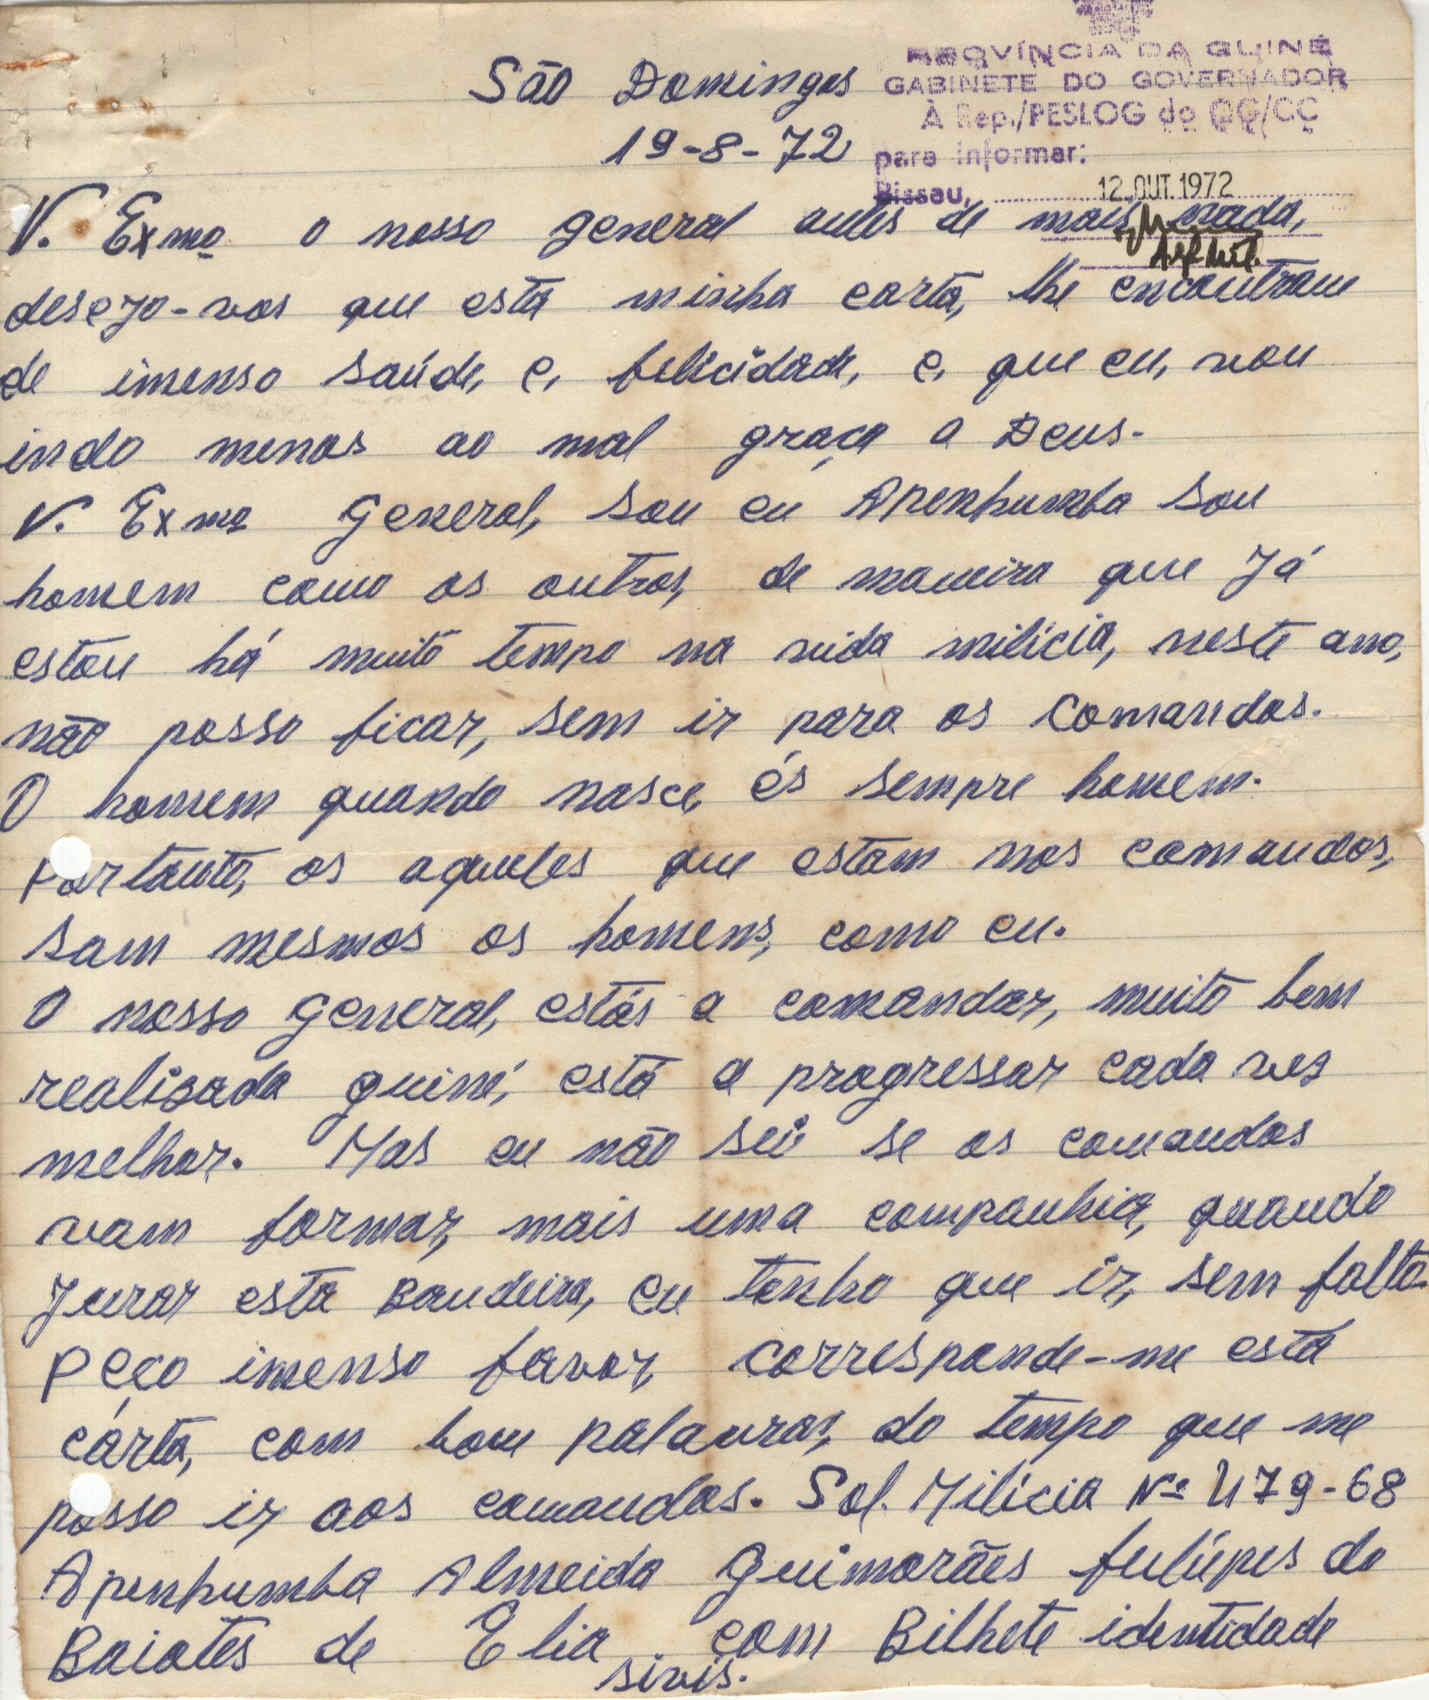 São Domingos
19-8-72
PROVÍNCIA DA GUINÉ
GABINETE DO GOVERNADOR
À Rep./PESLOG do QG/CC
para informar:
Bissau, 12.OUT.1972
V. Exmo o nosso general antes de mais nada,
desejo-vos que está minha carta, lhe encontram
de imenso saúde, e, felicidade, e, que eu, vou
indo menos ao mal graça a Deus.
V. Exmo General, sou eu Apenhumba sou
homem como os outros, de maneira que Já
estou há muito tempo na vida milicia, neste ano,
não posso ficar, sem ir para os Comandos.
O homem quando nasce, és sempre homem.
Portanto, os aqueles que estam nos comandos,
sam mesmos os homens, como eu.
O nosso General, estás a comandar, muito bem
realisada guiné, está a progressar cada ves
melhor. Mas eu não sei se os comandos
vam formar, mais uma companhia, quando
Jurar esta Bandeira, eu tenho que ir, sem falta.
Peço imenso favor, corresponde-me está
cárta, com bom palavras, do tempo que me
posso ir aos comandos. Sol. Milicia Nº 479-68
Apenhumba Almeida Guimarães fulúpes do
Baiotes de Elia com Bilhete identidade
sivis.